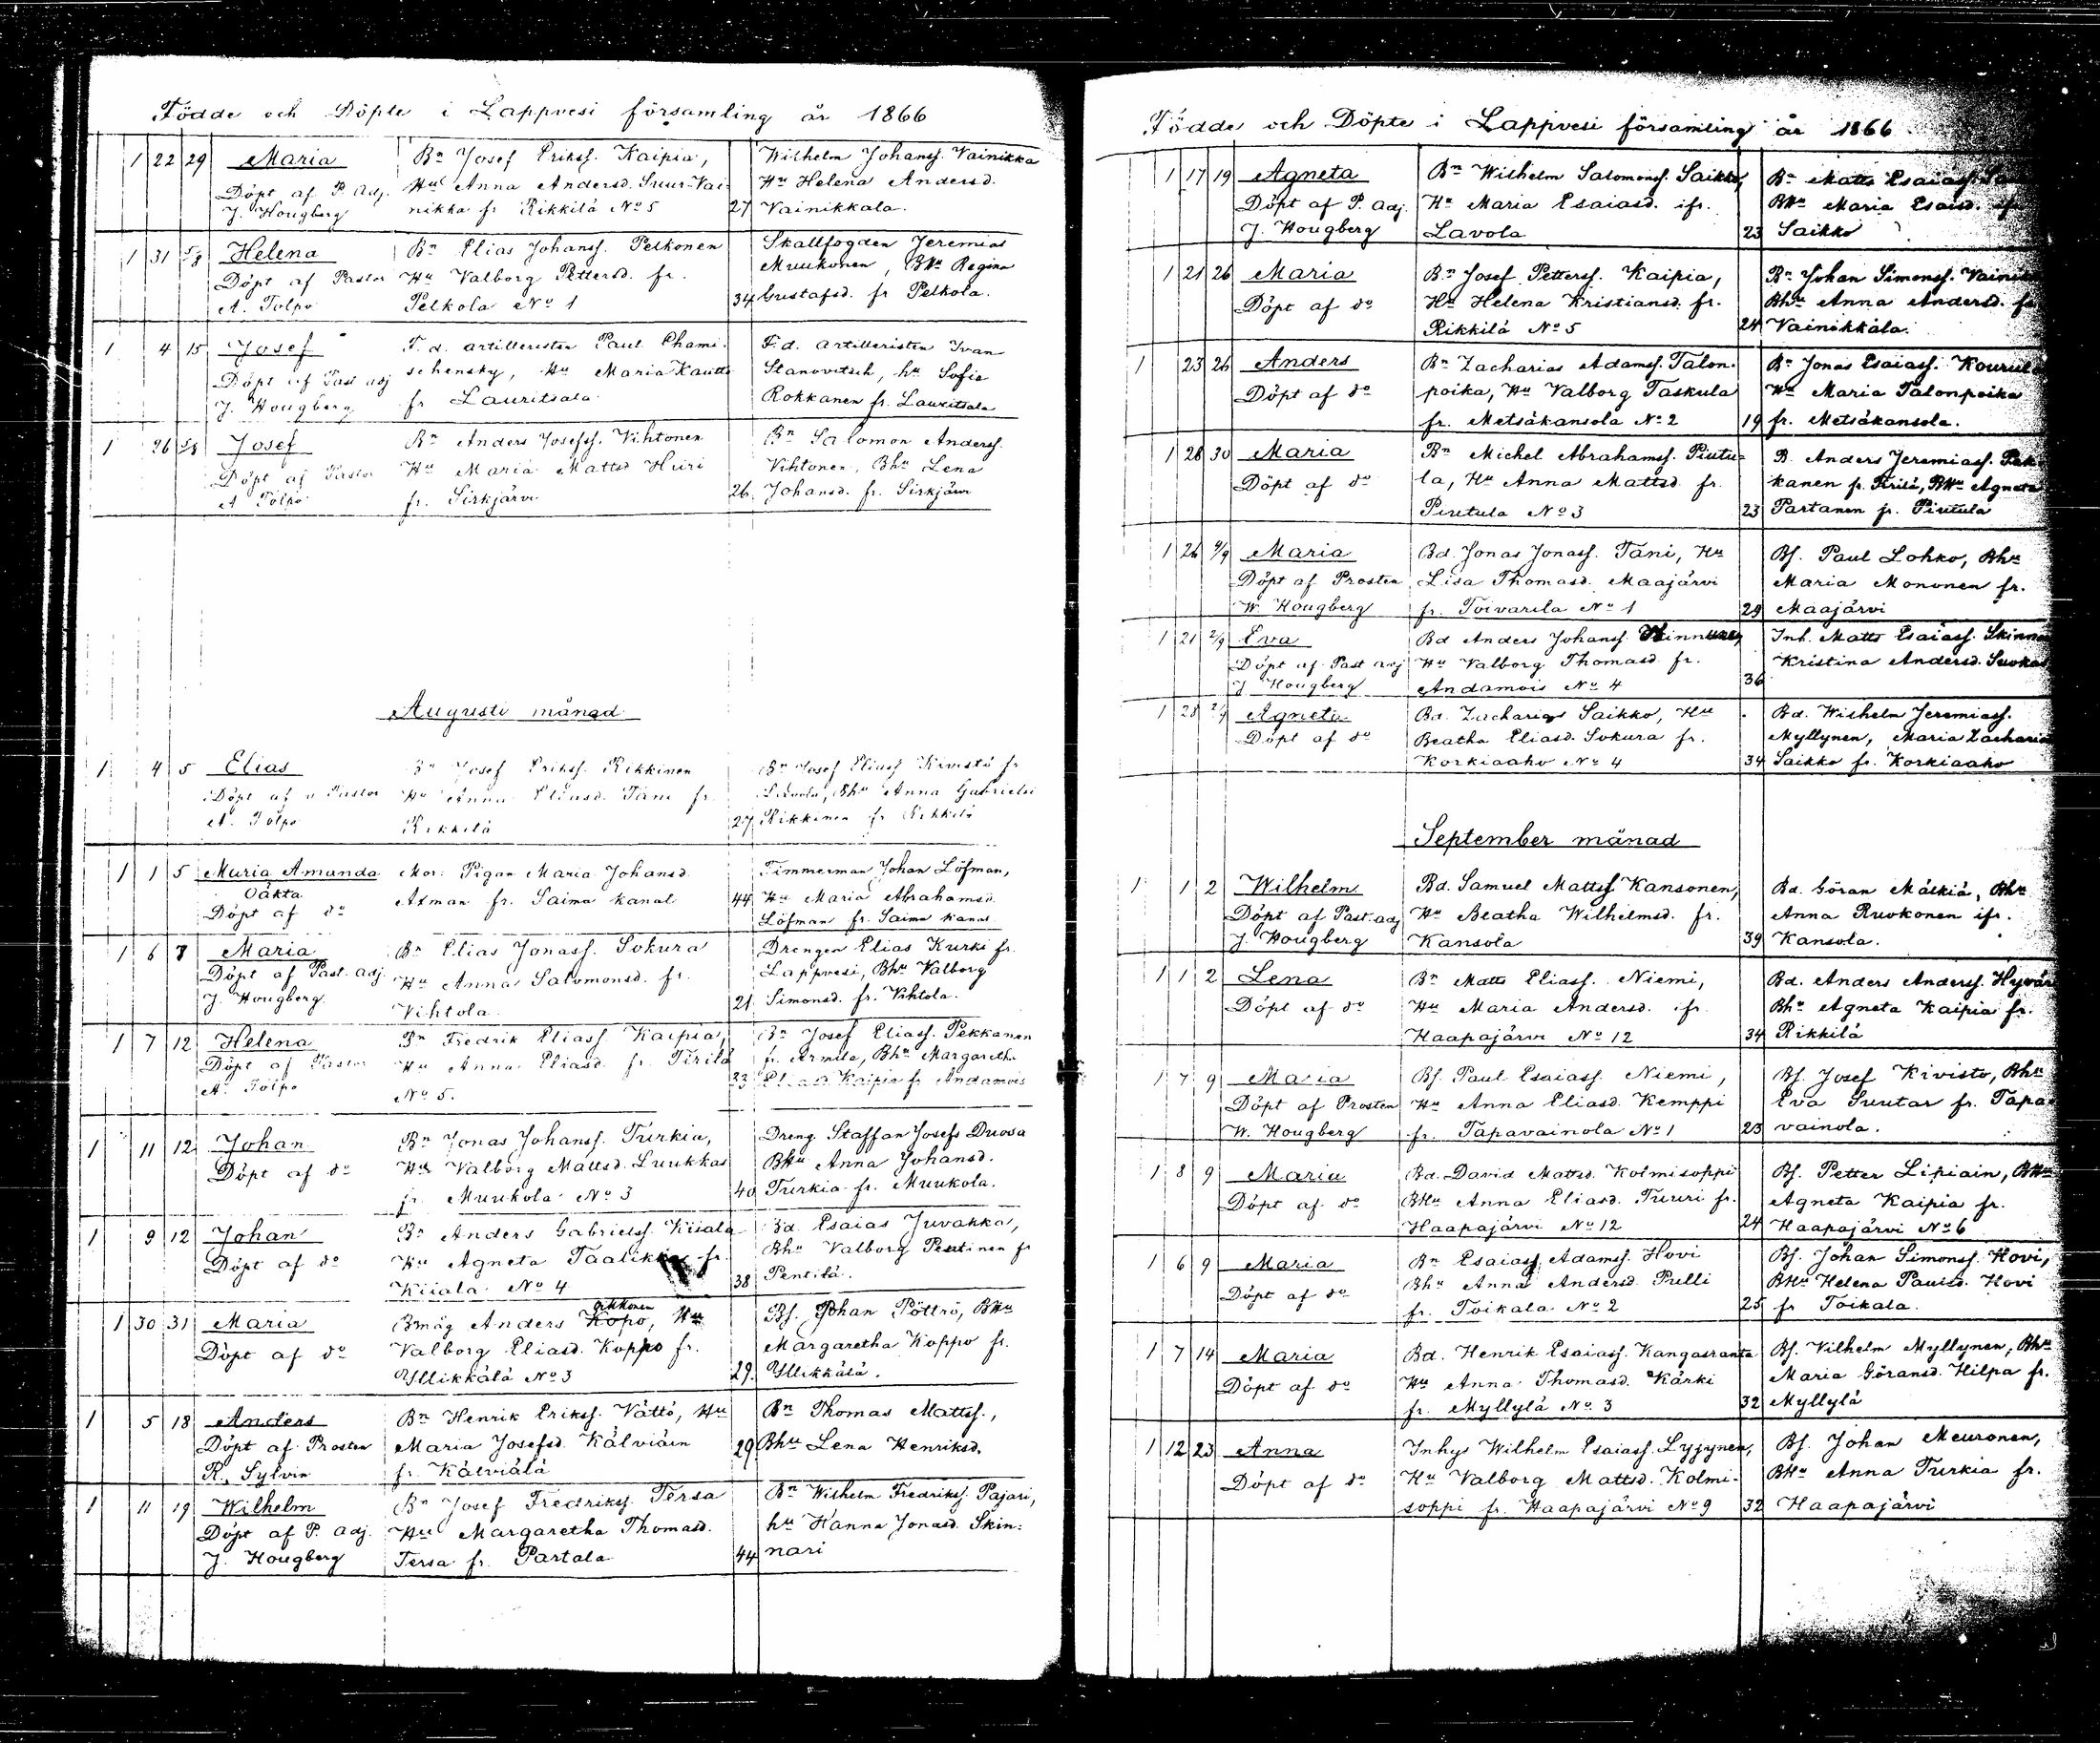 Födde och Döpte i Lappvesi församling år 1866
1 22 29 Maria Bn Josef Erikss. Kaipia, Wilhelm Johanss. Vainikka
Döpt af P. Adj. Hu Anna Andersd. Suur-Vai- Hu Helena Andersd.
J. Hougberg nikka fr Rikkilä No 5 27 Vainikkala.
1 31 5/8 Helena Bn Elias Johanss. Pelkonen Skallfogden Jeremias
Döpt af Pastor Hu Valborg Pettersd. fr. Muukonen, BHu Regina
A. Tolpo Pelkola No 1 34 Gustafsd. fr Pelkola.
1 4 15 Josef F. d. artilleristen Paul Chami- F. d. artilleristen Ivan
Döpt af Past adj schensky, Hu Maria Kautto Stanovitsch, hu Sofia
J. Hougberg fr Lauritsala Rokkanen fr. Lauritsala
1 26 Josef Bn Anders Josefss. Vihtonen Bn Salomon Anderss.
Döpt af Pastor Hu Maria Mattsd Huri Vihtonen, Bhu Lena
A Tolpo fr. Sirkjärvi 26. Johansd. fr. Sirkjärvi
Augusti månad
1 4 5 Elias Bn Josef Erikss. Rikkinen Bn Josef Eliass Kivistö fr
Döpt af Pastor Hu Anna Eliasd. Tani fr. Lavola, Bhu Anna Gabrielsd
A. Tolpo Rikkilä 27 Rikkinen fr Rikkilä
1 1 5 Maria Amanda Mor: Pigan Maria Johansd. Timmerman Johan Löfman,
Oäkta Axman fr. Saima kanal 44 Hu Maria Abrahamsd.
Döpt af do Löfman fr. Saima kanal
1 6 8 Maria Bn Elias Jonass. Sokura Drengen Elias Kurki fr.
Döpt af Past. adj. Hu Anna Salomonsd. fr. Lappvesi, Bhu Valborg
J. Hougberg Vihtola 21. Simonsd. fr. Vihtola.
1 7 12 Helena Bn Fredrik Eliass Kaipia, Bn Josef Eliass. Pekkanen
Döpt af Pastor Hu Anna Eliasd. fr Tirilä fr. Armila, Bhu Margaretha
A. Tolpo No 5. 33 Eliasd Kaipia fr Andamois
1 11 12 Johan Bn Jonas Johanss. Turkia, Dreng. Staffan Josefs Duosa
Döpt af do Hu Valborg Mattsd. Luukkas BHu Anna Johansd.
fr. Muukola No 3 40 Turkia fr. Muukola.
1 9 12 Johan Bn Anders Gabrielss. Kiiala Bd. Esaias Juvakka,
Döpt af do Hu Agneta fr. Bhu Valborg Penttinen fr
Kiiala No 4 38 Pentilä.
1 30 31 Maria Bmåg Anders Kopo, Hu Bf. Johan Pöttrö, BHu
Döpt af do Valborg Eliasd. Koppo fr. Margaretha Koppo fr.
Yllikkälä No 3 29. Yllikkälä.
1 5 18 Anders Bn Henrik Erikss. Vättö, Hu Bn Thomas Mattss.,
Döpt af Prosten Maria Josefsd. Kälviäin 29 Bhu Lena Henriksd.
R. Sylvin fr. Kälviälä
1 11 19 Wilhelm Bn Josef Fredrikss. Tersa Bn Wilhelm Fredrikss. Pajari,
Döpt af P. adj. Hu Margaretha Thomasd. hu Hanna Jonasd. Skin-
J. Hougberg Tersa fr. Partala 44 nari
Födde och Döpte i Lappvesi församling år 1866
1 17 19 Agneta Bn Wilhelm Salomonss. Saikko, Bn Matts Esaiass
Döpt af P. adj. Hu Maria Esaiasd. ifr. BHu Maria Esaisd.
J. Hougberg Lavola 23 Saikko
1 21 26 Maria Bn Josef Petterss. Kaipia, Bn Johan Simonss.
Döpt af do Hu Helena Kristiansd. fr. Bhu Anna Andersd. fr
Rikkilä No 5 24 Vainikkala.
1 23 26 Anders Bn Zacharias Adamss. Talon- Bn Jonas Esaiass.
Döpt af do poika, Hu Valborg Taskula Hu Maria Talonpoika
fr. Metsäkansola No 2 19 fr. Metsäkansola.
1 28 30 Maria Bn Michel Abrahamss. Piutu- B. Anders Jeremiass. Pek-
Döpt af do la, Hu Anna Mattsd. fr. kanen fr. Tirilä, BHu Agneta
Piutula No 3 23 Partanen fr. Piutula
1 26 4/9 Maria Bd. Jonas Jonass. Tani, Hu Bf. Paul Lohko, Bhu
Döpt af Prosten Lisa Thomasd. Maajärvi Maria Mononen fr.
W. Hougberg fr. Toivarila No 1 29 Maajärvi
1 21 2/9 Eva Bd Anders Johanss. Inh. Matts Esaiass.
Döpt af Past adj Hu Valborg Thomasd. fr. Kristina Andersd.
J Hougberg Andamois No 4 36
1 28 2/9 Agneta Bd. Zacharias Saikko, Hu Bd. Wilhelm Jeremiass.
Döpt af do Beatha Eliasd. Sokura fr. Myllynen, Maria Zacharia
Korkiaaho No 4 34 Saikko fr. Korkiaaho
September månad
1 1 2 Wilhelm Bd. Samuel Mattss Kansonen, Bd. Göran Mälkiä, Bhu
Döpt af Past. adj Hu Beatha Wilhelmsd. fr. Anna Ruokonen ifr.
J. Hougberg Kansola 39 Kansola.
1 1 2 Lena Bn Matts Eliass. Niemi, Bd. Anders Anderss. Hyvär
Döpt af do Hu Maria Andersd. ifr. Bhu Agneta Kaipia fr.
Haapajärvi No 12 34 Rikkilä
1 7 9 Maria Bf. Paul Esaiass. Niemi, Bf. Josef Kivisto, Bhu
Döpt af Prosten Hu Anna Eliasd. Kemppi Eva Suutar fr. Tapa-
W. Hougberg fr. Tapavainola No 1 23 vainola.
1 8 9 Maria Bd. David Mattsd. Kolmisoppi Bf. Petter Lipiain, BHu
Döpt af do BHu Anna Eliasd. Tuuri fr. Agneta Kaipia fr.
Haapajärvi No 12 24 Haapajärvi No 6
1 6 9 Maria Bn Esaiass Adamss. Hovi Bf. Johan Simonss. Hovi,
Döpt af do Bhu Anna Andersd. Pulli BHu Helena Paulsd. Hovi
fr. Toikala No 2 25 fr Toikala.
1 7 14 Maria Bd. Henrik Esaiass. Kangasranta Bf. Vilhelm Myllynen, Bhu
Döpt af do Hu Anna Thomasd. Kärki Maria Göransd. Hilpa fr.
fr. Myllylä No 3 32 Myllylä
1 12 23 Anna Inhys Wilhelm Esaiass. Lyjynen, Bf. Johan Meuronen,
Döpt af do Hu Valborg Mattsd. Kolmi- BHu Anna Turkia fr.
soppi fr. Haapajärvi No 9 32 Haapajärvi